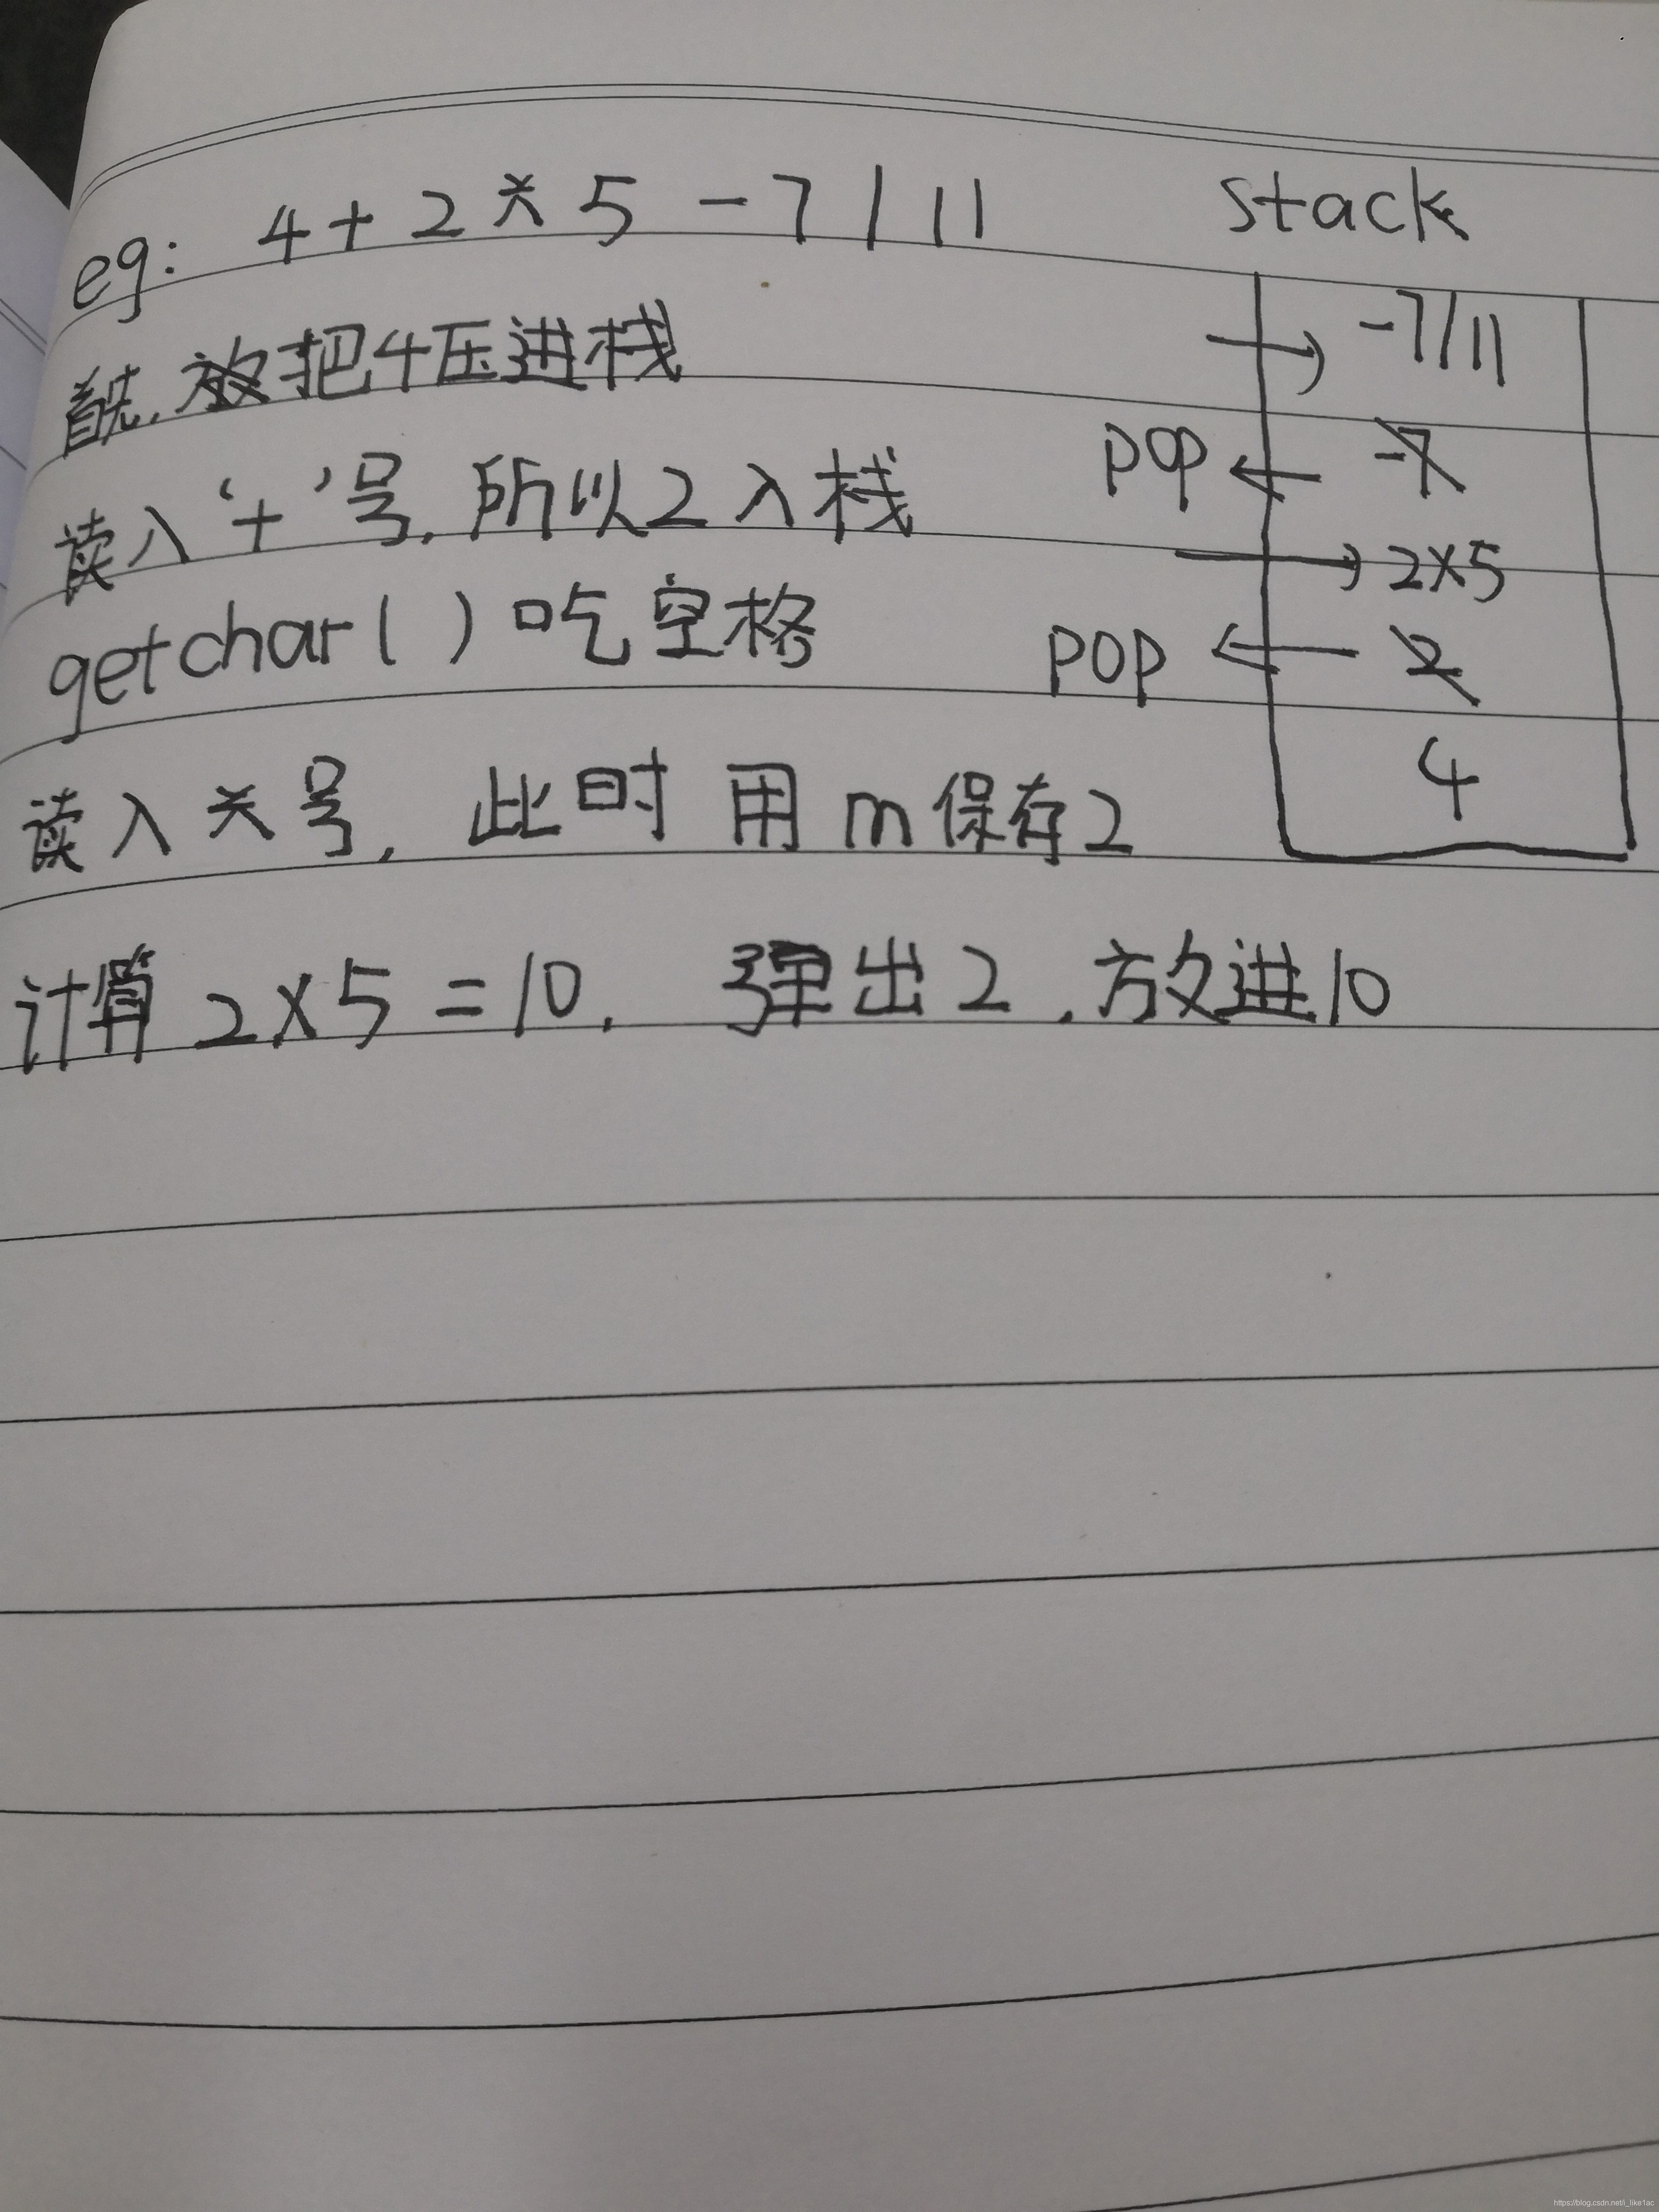 eg: 4 + 2 * 5 - 7 / 11
stack
首先.放把4压进栈
读入'+'号,所以2入栈
getchar()吃空格
读入*号,此时用m保存2
计算2×5=10. 弹出2.放进10
-7/11
pop -7
2×5
pop 2
4
https://blog.csdn.net/i_like1ac